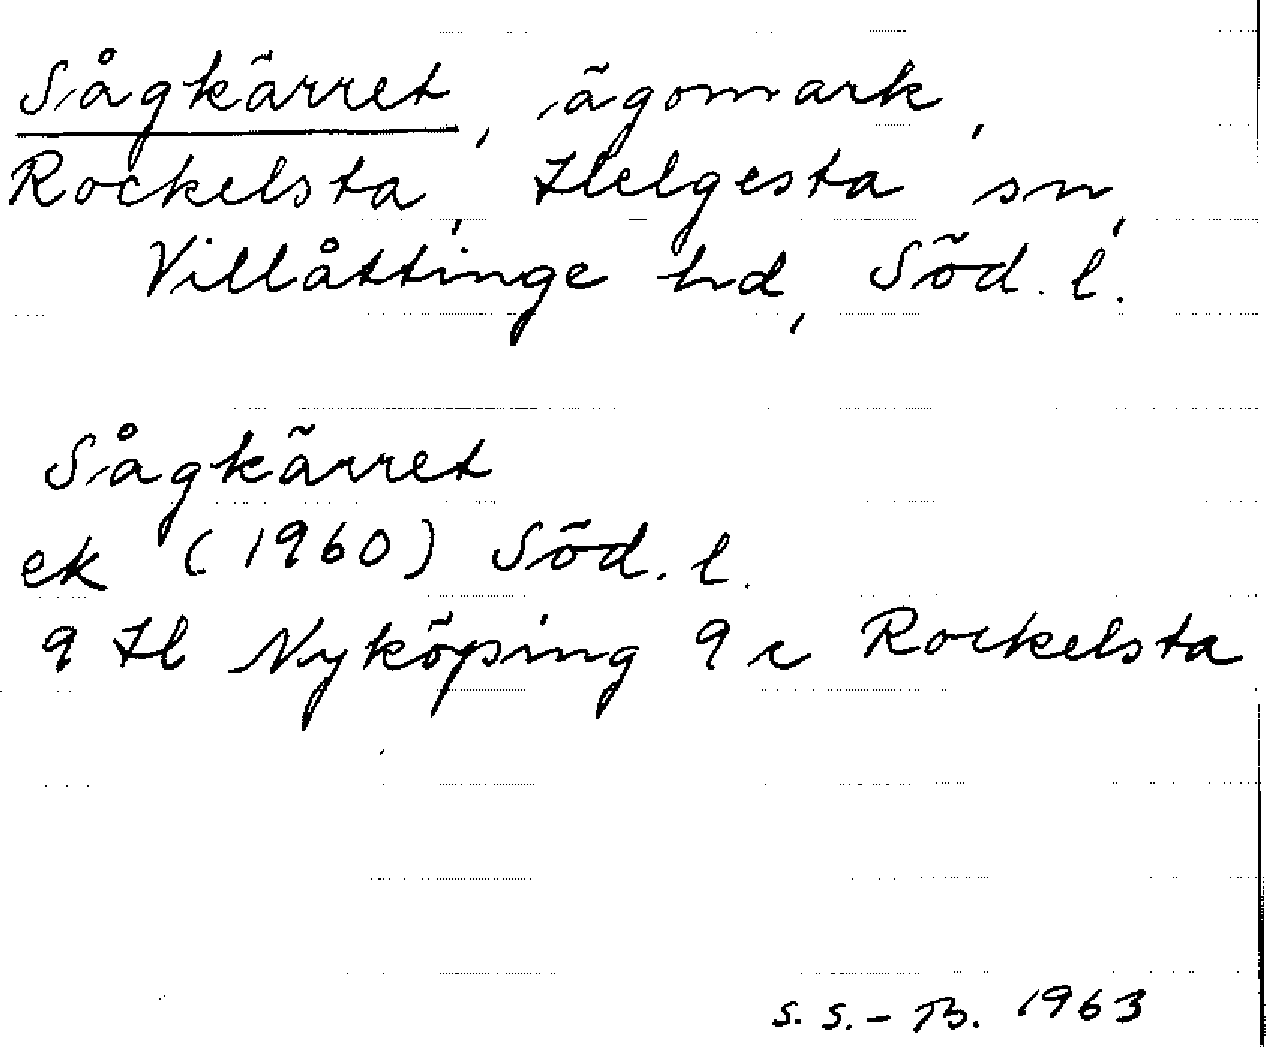 Sågkärret, ägomark,
Rockelsta, Helgesta sn,
Villåttinge hd, Söd. l.
Sågkärret
ek (1960) Söd. l.
9 H Nyköping 9 c Rockelsta
S. S. - B. 1963